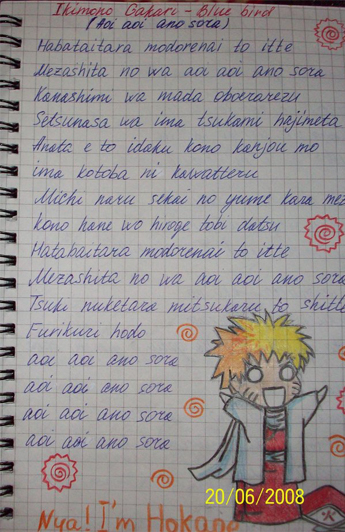 Ikimono Gakari - Blue bird
(Aoi aoi ano sora)
Habataitara modorenai to itte
Mezashita no wa aoi aoi ano sora
Kanashimi wa mada oboerarezu
Setsunasa wa ima tsukami hajimeta
Anata e to idaku kono kanjou mo
ima kotoba ni kawatteru
Michi naru sekai no yume kara mez
kono hane wo hiroge tobi datsu
Hatabaitara modorenai to itte
Mezashita no wa aoi aoi ano sora
Tsuki nuketara mitsukaru to shitte
Furikiri hodo
aoi aoi ano sora
aoi aoi ano sora
aoi aoi ano sora
aoi aoi ano sora
Nya! I'm Hokage
20/06/2008